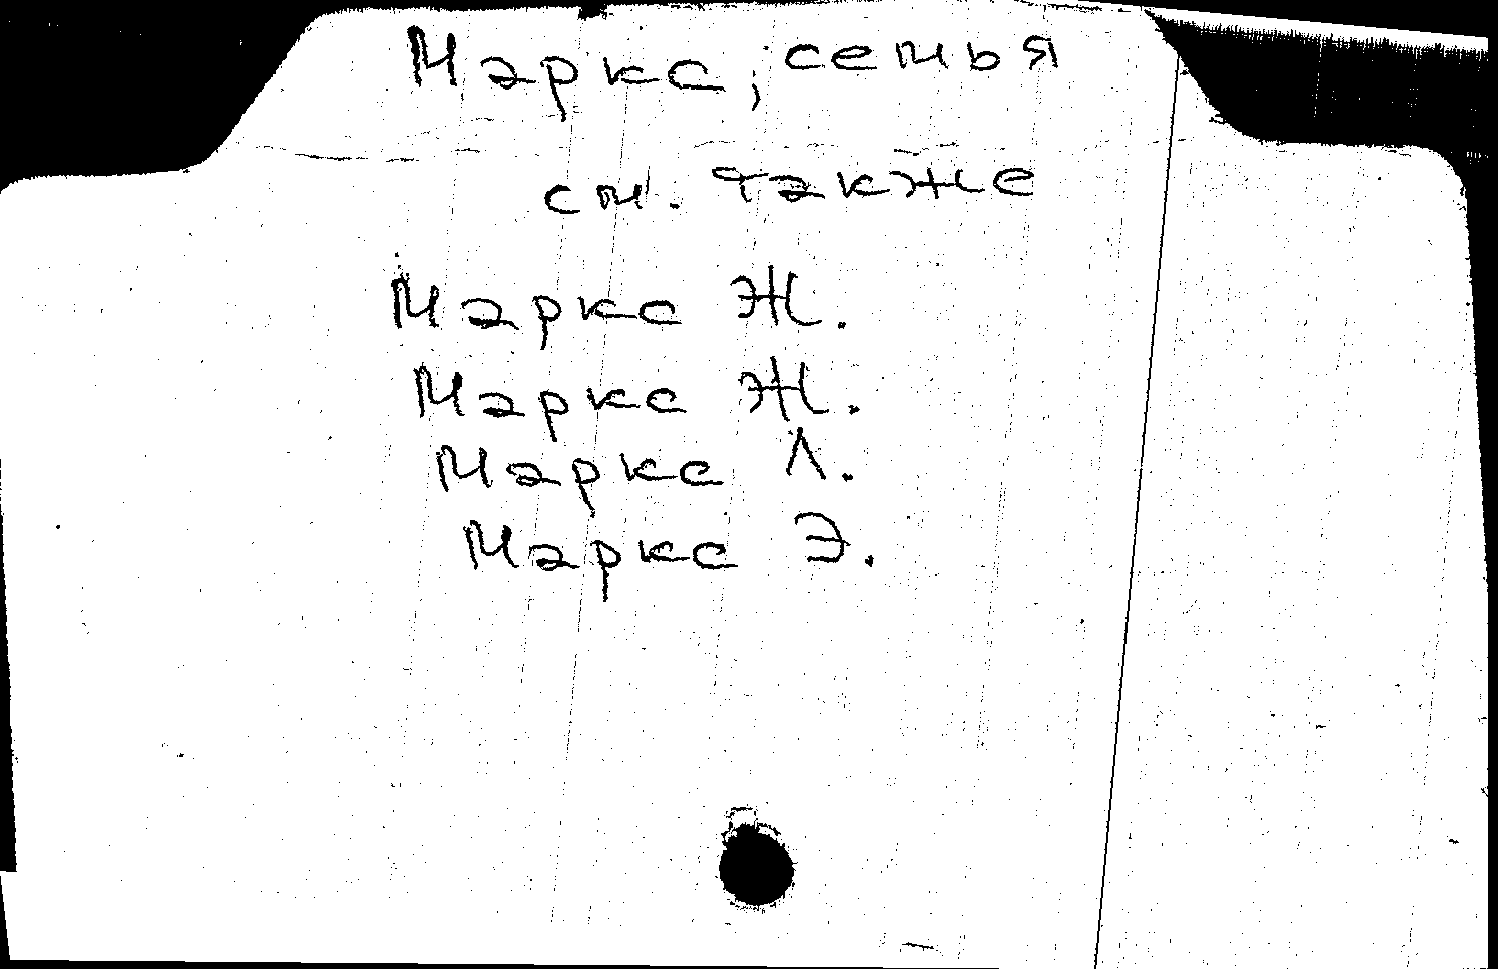 Маркс, семья
см. также
Маркс Ж.
Маркс Ж.
Маркс Л.
Маркс Э.